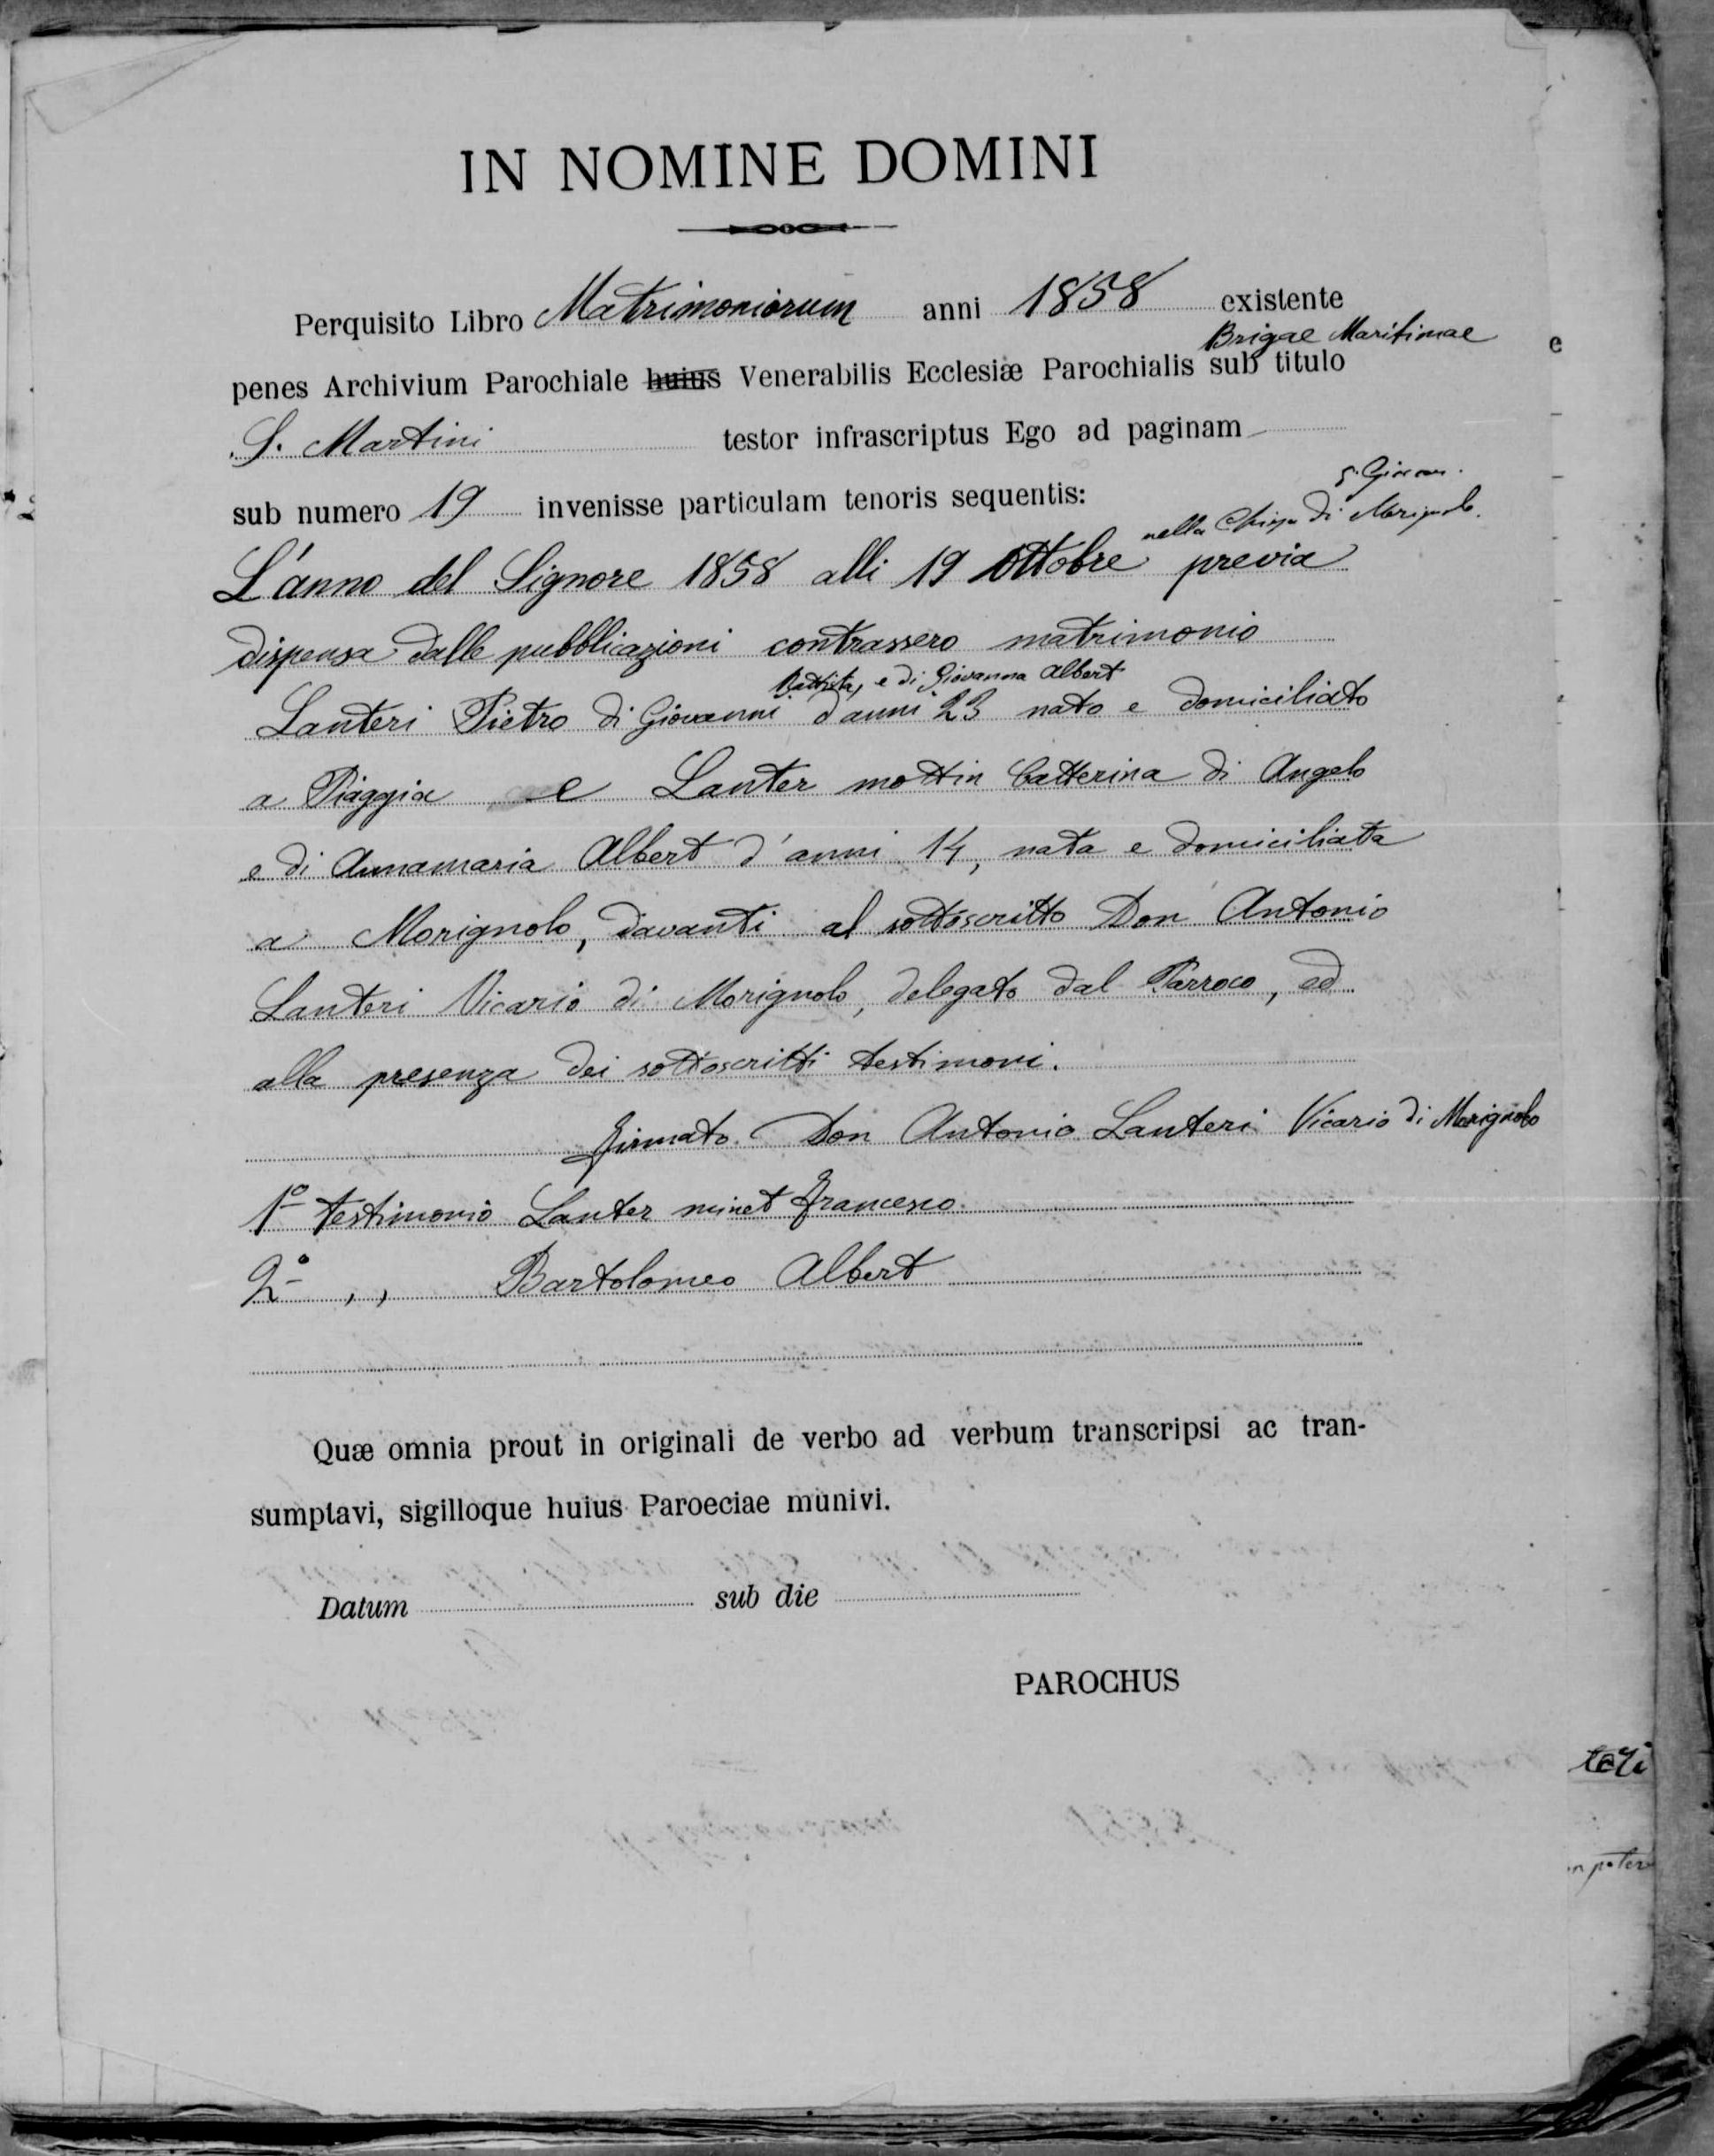 IN NOMINE DOMINI
Perquisito Libro Matrimoniorum anni 1858 existente
Brigae Maritimae
penes Archivium Parochiale huius Venerabilis Ecclesiæ Parochialis sub titulo
S. Martini testor infrascriptus Ego ad paginam
sub numero 19 invenisse particulam tenoris sequentis:
nella Chiesa di Morignolo
L'anno del Signore 1858 alli 19 Ottobre previa
dispensa dalle pubblicazioni contrassero matrimonio
Battista, e di Giovanna Albert
Lanteri Pietro di Giovanni d'anni 23 nato e domiciliato
a Piaggia e Lanter mottin Catterina di Angelo
e di Annamaria Albert d'anni 14, nata e domiciliata
a Morignolo, davanti al sottoscritto Don Antonio
Lanteri Vicario di Morignolo, delegato dal Parroco, ed
alla presenza dei sottoscritti testimoni.
Firmato Don Antonio Lanteri Vicario di Morignolo
1º testimonio Lanter minet Francesco
2º ,, Bartolomeo Albert
Quæ omnia prout in originali de verbo ad verbum transcripsi ac tran-
sumptavi, sigilloque huius Paroeciae munivi.
Datum sub die
PAROCHUS
teri